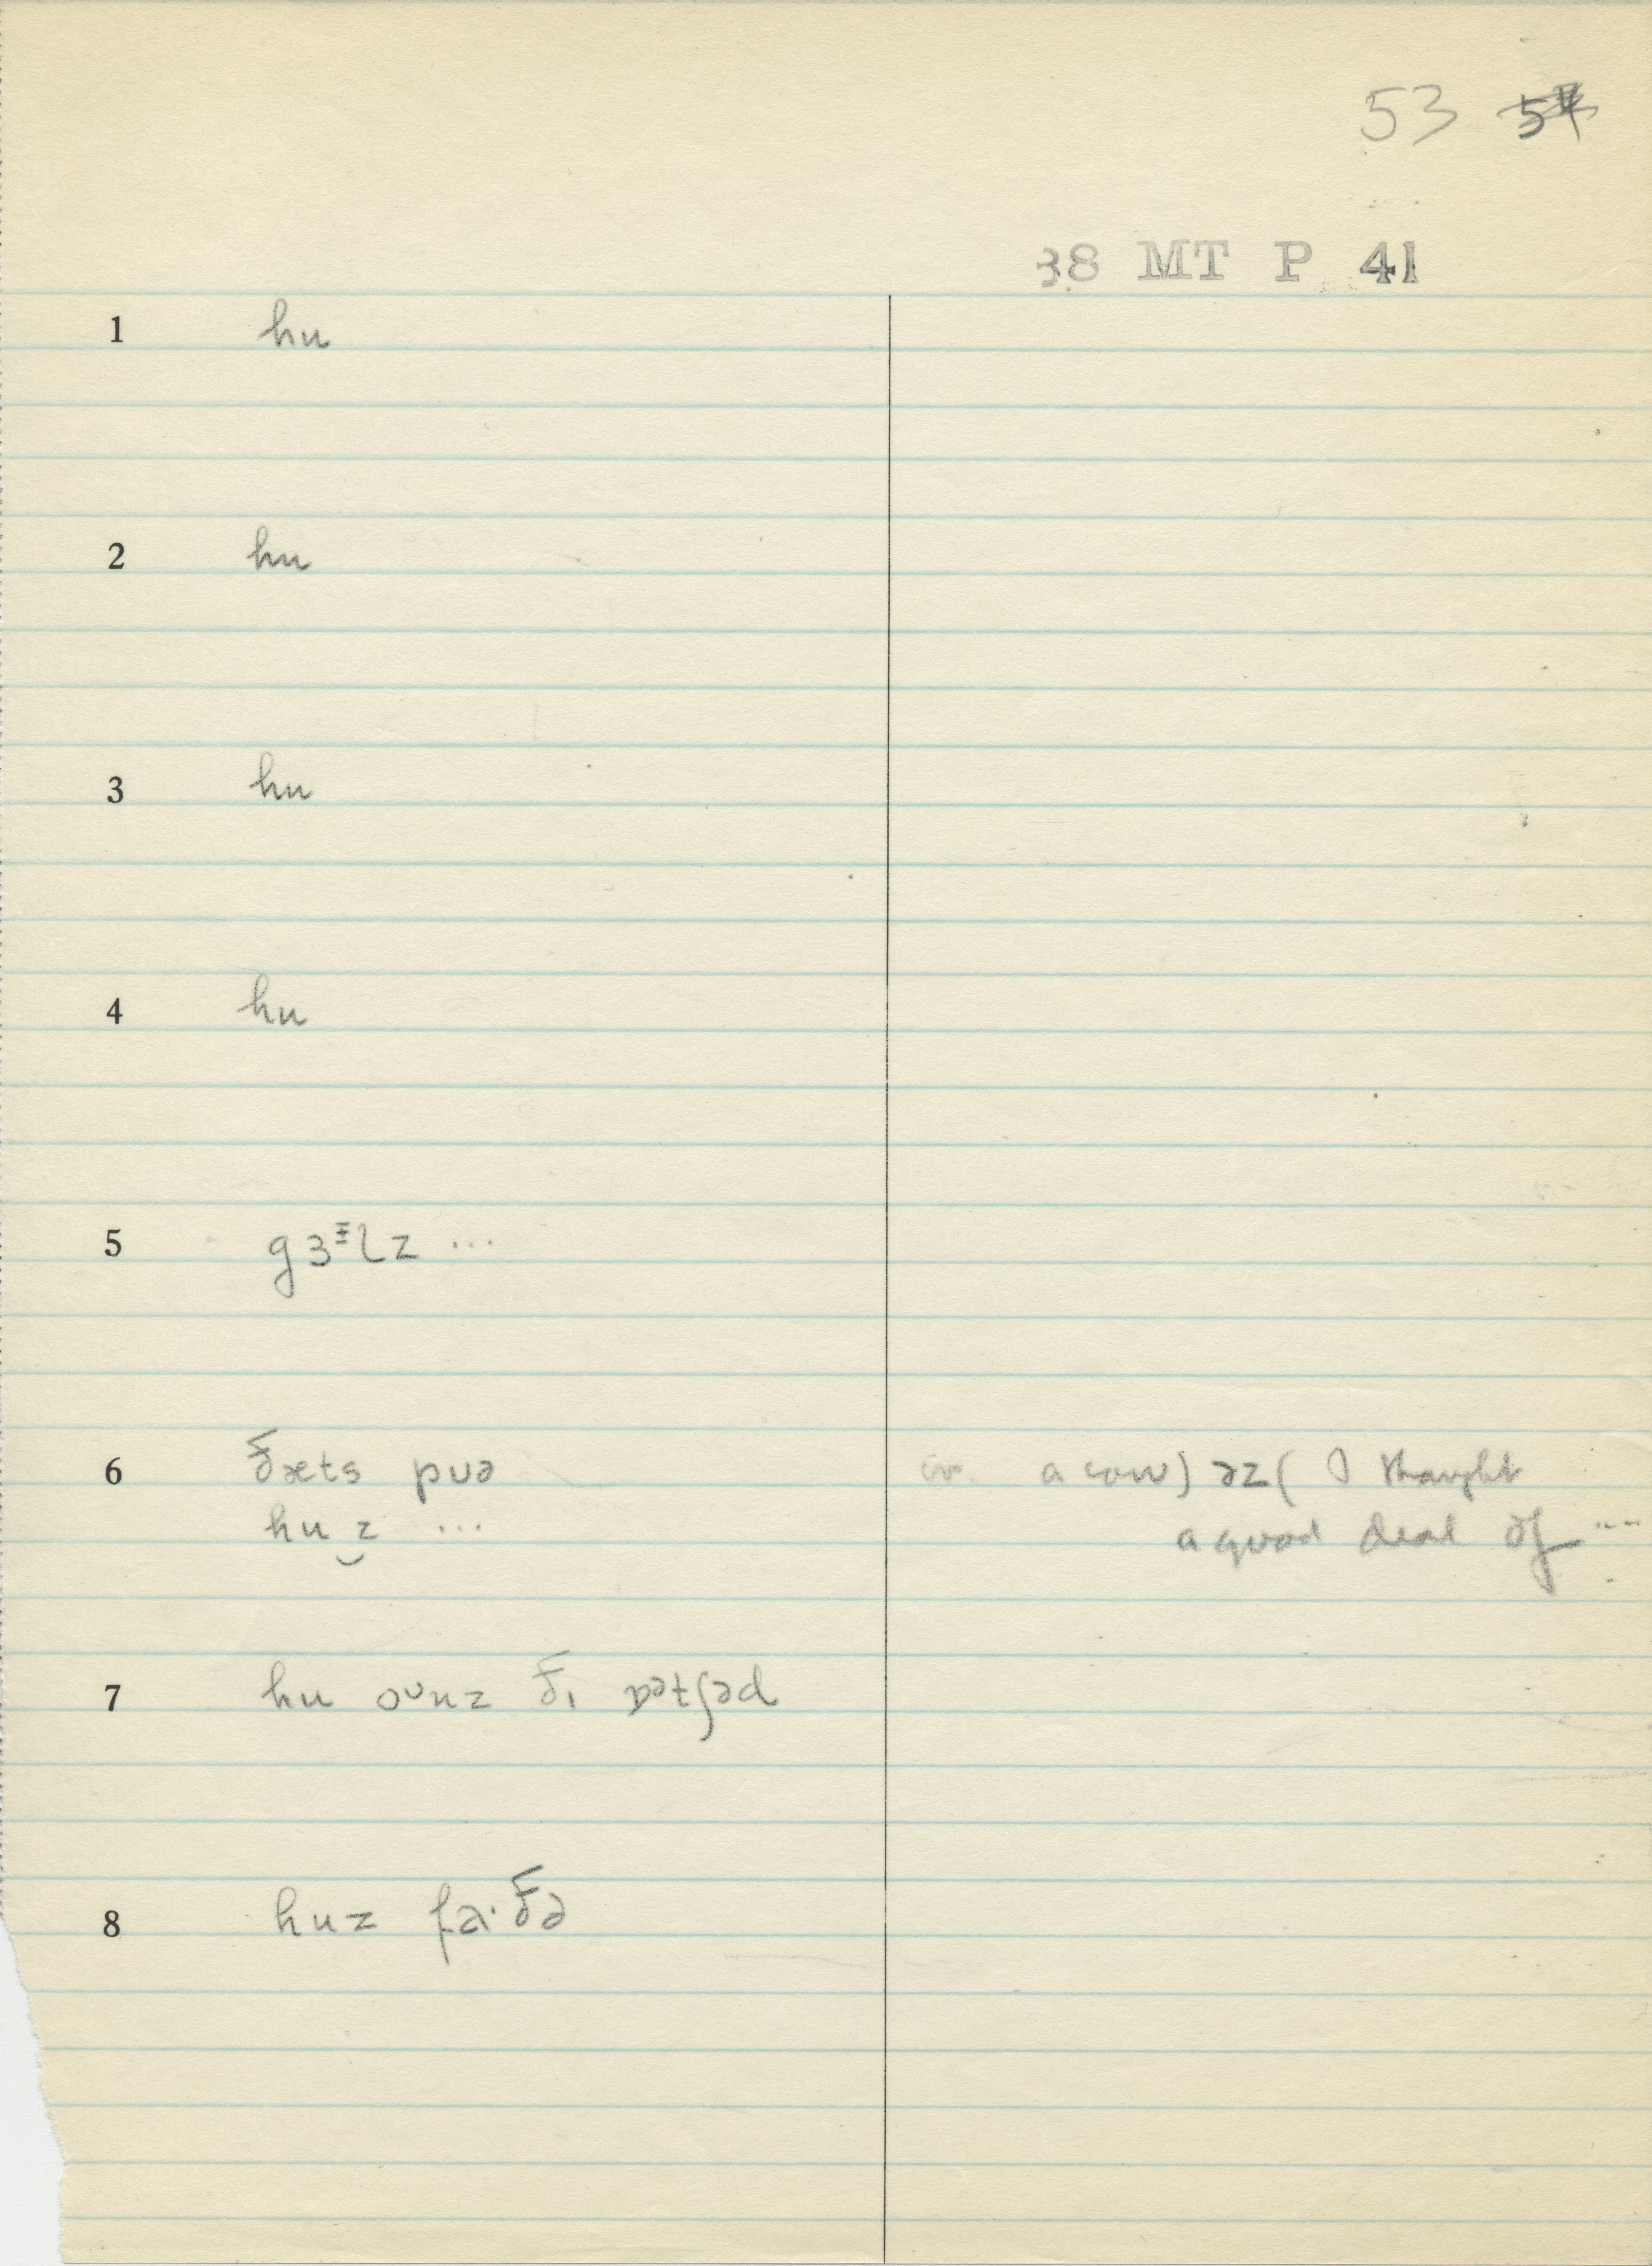 53 54
38 MT P 41
1 hu
2 hu
3 hu
4 hu
5 gɜᵻlz ...
6 ðæts puə
hu‿z ...
cv. a cow) əz( I thought
a good deal of ...
7 hu oᴜnz ðɪ ɒətʃəd
8 huz fa·ðə